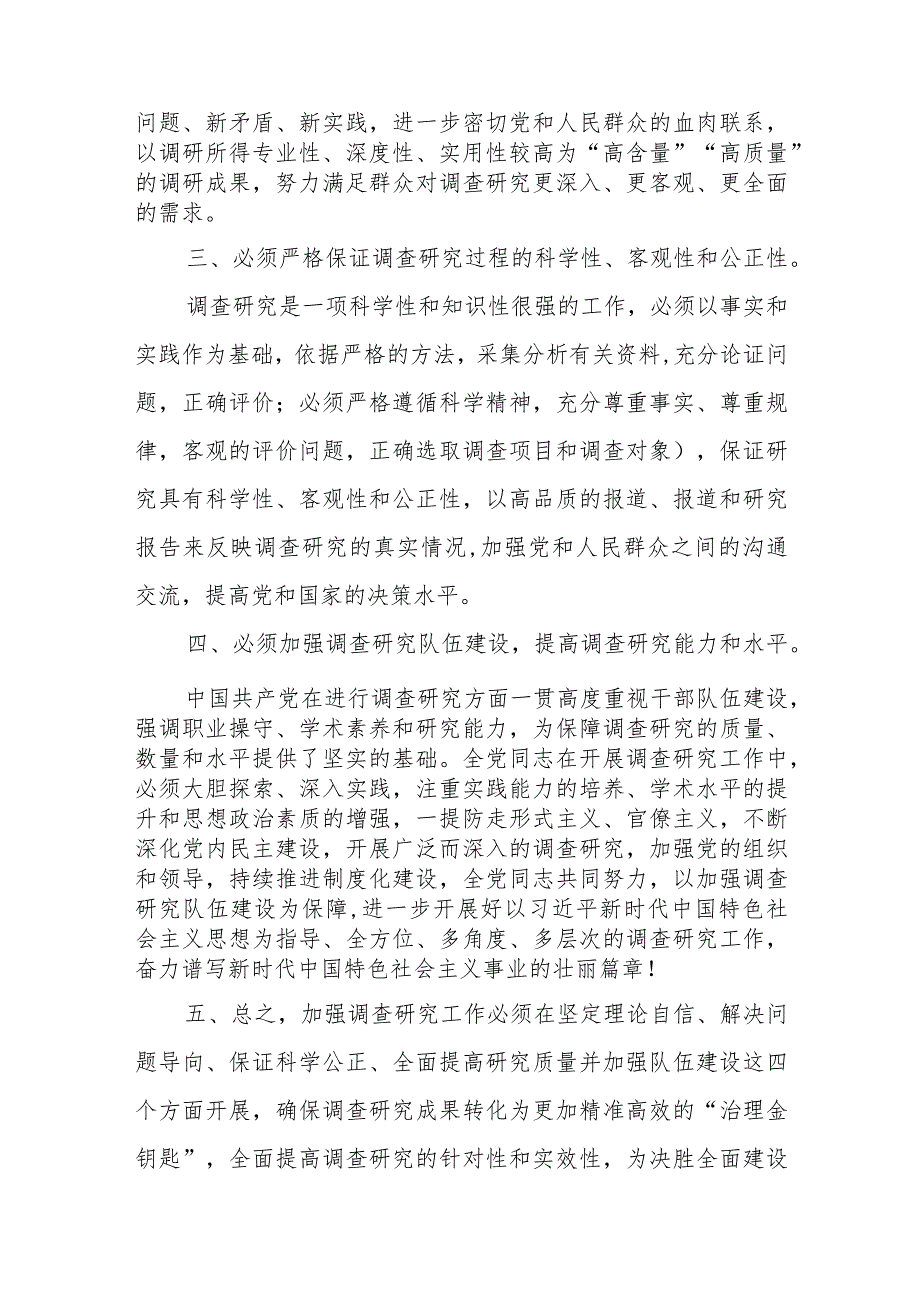 问题、新矛盾、新实践，进一步密切党和人民群众的血肉联系，
以调研所得专业性、深度性、实用性较高为“高含量”“高质量”
的调研成果，努力满足群众对调查研究更深入、更客观、更全面
的需求。
三、必须严格保证调查研究过程的科学性、客观性和公正性。
调查研究是一项科学性和知识性很强的工作，必须以事实和
实践作为基础，依据严格的方法，采集分析有关资料,充分论证问
题，正确评价；必须严格遵循科学精神，充分尊重事实、尊重规
律，客观的评价问题，正确选取调查项目和调查对象），保证研
究具有科学性、客观性和公正性，以高品质的报道、报道和研究
报告来反映调查研究的真实情况,加强党和人民群众之间的沟通
交流，提高党和国家的决策水平。
四、必须加强调查研究队伍建设，提高调查研究能力和水平。
中国共产党在进行调查研究方面一贯高度重视干部队伍建设，
强调职业操守、学术素养和研究能力，为保障调查研究的质量、
数量和水平提供了坚实的基础。全党同志在开展调查研究工作中，
必须大胆探索、深入实践，注重实践能力的培养、学术水平的提
升和思想政治素质的增强，一提防走形式主义、官僚主义，不断
深化党内民主建设，开展广泛而深入的调查研究，加强党的组织
和领导，持续推进制度化建设，全党同志共同努力，以加强调查
研究队伍建设为保障,进一步开展好以习近平新时代中国特色社
会主义思想为指导、全方位、多角度、多层次的调查研究工作，
奋力谱写新时代中国特色社会主义事业的壮丽篇章！
五、总之，加强调查研究工作必须在坚定理论自信、解决问
题导向、保证科学公正、全面提高研究质量并加强队伍建设这四
个方面开展，确保调查研究成果转化为更加精准高效的“治理金
钥匙”，全面提高调查研究的针对性和实效性，为决胜全面建设